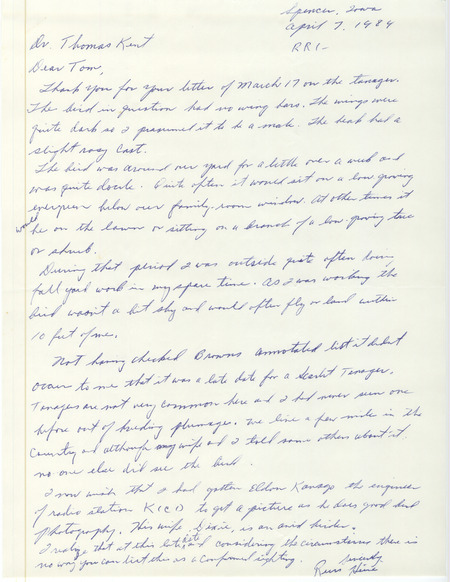 Spencer, Iowa
April 7, 1984
RR1-
Dr. Thomas Kent
Dear Tom,
Thank you for your letter of March 17 on the tanager.
The bird in question had no wing bars. The wings were
quite dark so I presumed it to be a male. The beak had a
slight rosy cast.
The bird was around our yard for a little over a week and
was quite docile. Quite often it would sit on a low growing
evergreen below our family room window. At other times it
would be on the lawn or sitting on a branch of a low-growing tree
or shrub.
During that period I was outside quite often doing
fall yard work in my spare time. As I was working the
bird wasn't a bit shy and would often fly or land within
10 feet of me.
Not having checked Browns annotated list it didn't
occur to me that it was a late date for a Scarlet Tanager.
Tanagers are not very common here and I had never seen one
before out of breeding plumage. We live a few miles in the
Country and although my wife and I told some others about it
no one else did see the bird.
I now wish that I had gotten Eldon the engineer
of radio station KICD to get a picture as he does good deal
of Photography. His wife, is an avid birder.
I realize that at this late date and considering the circumstances there is
no way you can list this as a confirmed sighting.
Sincerely